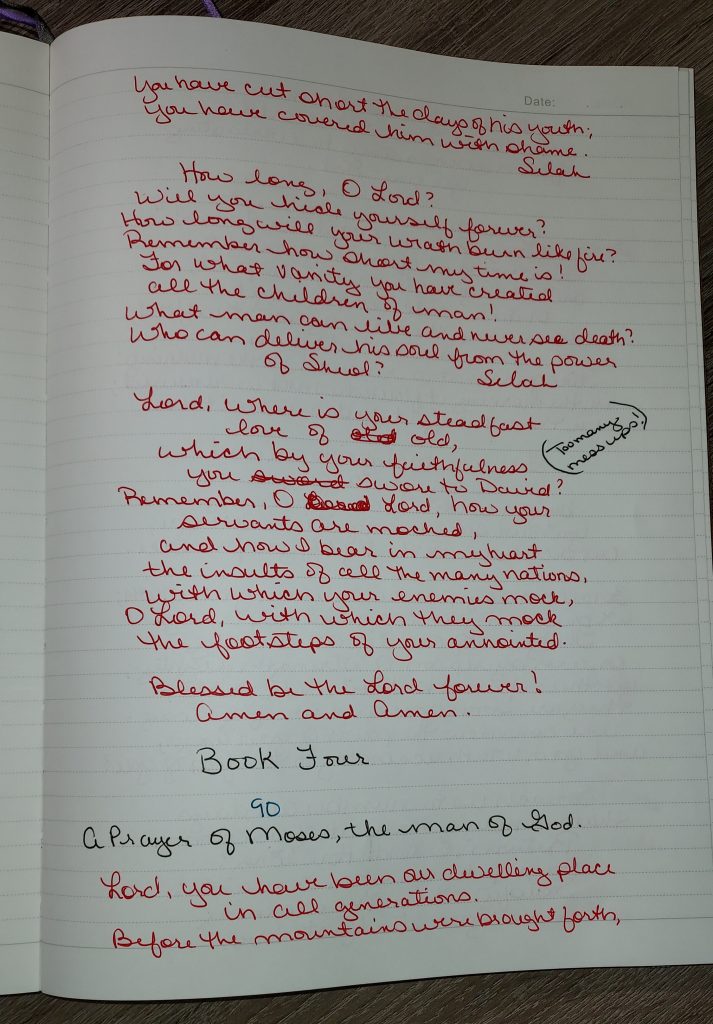 Date:
You have cut short the days of his youth;
you have covered him with shame.
Selah
How long, O Lord?
Will you hide yourself forever?
How long will your wrath burn like fire?
Remember how short my time is!
For what vanity you have created
all the children of man!
What man can live and never see death?
Who can deliver his soul from the power
of Sheol? Selah
Lord, where is your steadfast
love of old,
which by your faithfulness
you sword swore to David?
(Too many
mess ups!)
Remember, O Lord, how your
servants are mocked,
and how I bear in my heart
the insults of all the many nations,
with which your enemies mock,
O Lord, with which they mock
the footsteps of your annointed.
Blessed be the Lord forever!
Amen and Amen.
Book Four
90
A Prayer of Moses, the man of God.
Lord, you have been our dwelling place
in all generations.
Before the mountains were brought forth,